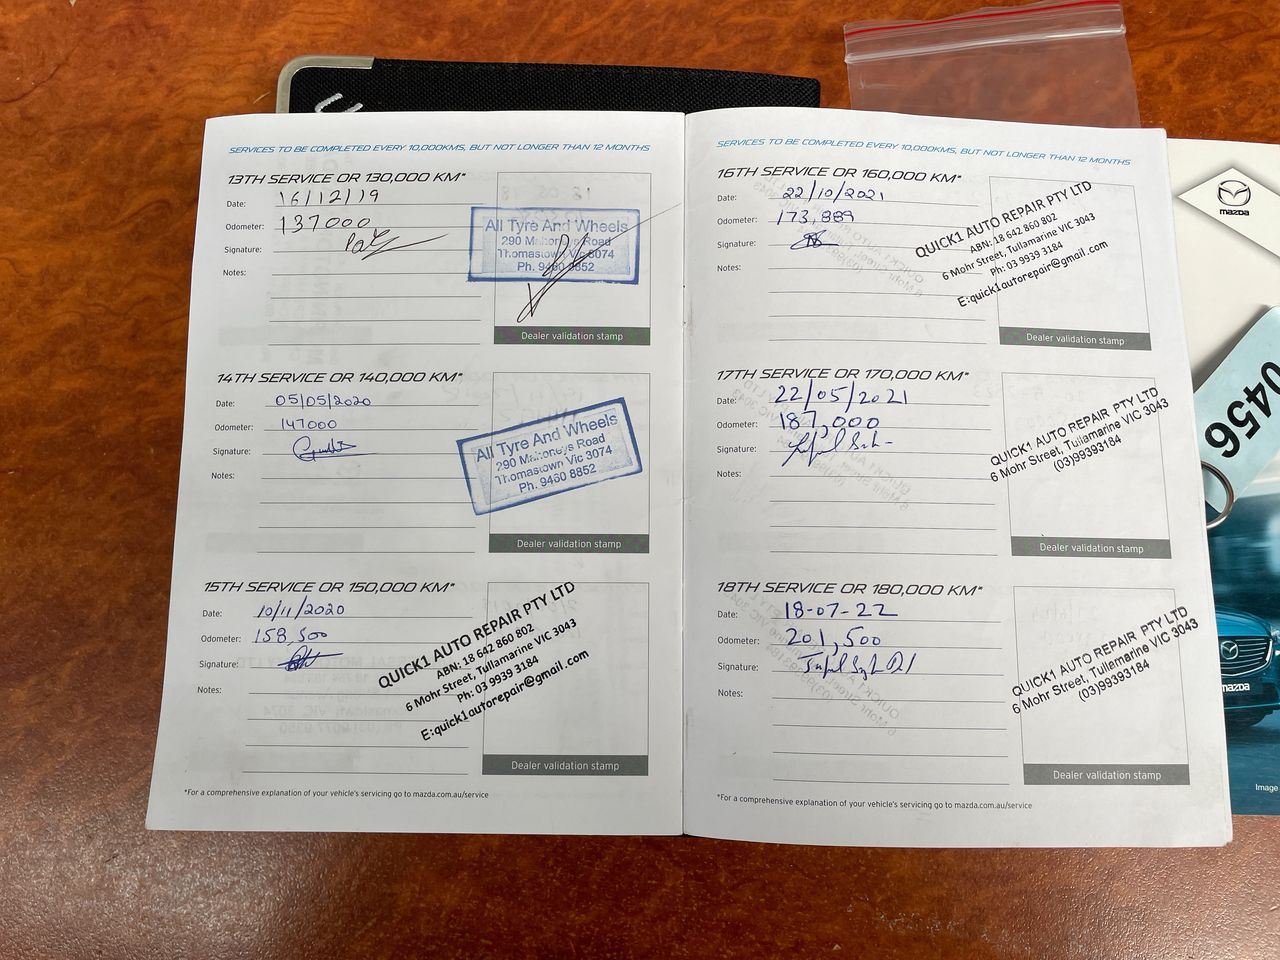 SERVICES TO BE COMPLETED EVERY 10,000KMS, BUT NOT LONGER THAN 12 MONTHS
13TH SERVICE OR 130,000 KM*
Date: 16/12/19
Odometer: 137000
Signature:
Notes:
All Tyre And Wheels
290 Mahoneys Road
Thomastown Vic 3074
Ph. 9460 8852
Dealer validation stamp
14TH SERVICE OR 140,000 KM*
Date: 05/05/2020
Odometer: 147000
Signature:
Notes:
All Tyre And Wheels
290 Mahoneys Road
Thomastown Vic 3074
Ph. 9460 8852
Dealer validation stamp
15TH SERVICE OR 150,000 KM*
Date: 10/11/2020
Odometer: 158,500
Signature:
Notes:
QUICK1 AUTO REPAIR PTY LTD
ABN: 18 642 860 802
6 Mohr Street, Tullamarine VIC 3043
Ph: 03 9939 3184
E:quick1autorepair@gmail.com
Dealer validation stamp
*For a comprehensive explanation of your vehicle's servicing go to mazda.com.au/service
SERVICES TO BE COMPLETED EVERY 10,000KMS, BUT NOT LONGER THAN 12 MONTHS
16TH SERVICE OR 160,000 KM*
Date: 22/10/2021
Odometer: 173,889
Signature:
Notes:
QUICK1 AUTO REPAIR PTY LTD
ABN: 18 642 860 802
6 Mohr Street, Tullamarine VIC 3043
Ph: 03 9939 3184
E:quick1autorepair@gmail.com
Dealer validation stamp
17TH SERVICE OR 170,000 KM*
Date: 22/05/2021
Odometer: 187,000
Signature:
Notes:
QUICK1 AUTO REPAIR PTY LTD
6 Mohr Street, Tullamarine VIC 3043
(03)99393184
Dealer validation stamp
18TH SERVICE OR 180,000 KM*
Date: 18-07-22
Odometer: 201,500
Signature:
Notes:
QUICK1 AUTO REPAIR PTY LTD
6 Mohr Street, Tullamarine VIC 3043
(03)99393184
Dealer validation stamp
*For a comprehensive explanation of your vehicle's servicing go to mazda.com.au/service
mazda
0456
mazda
Image